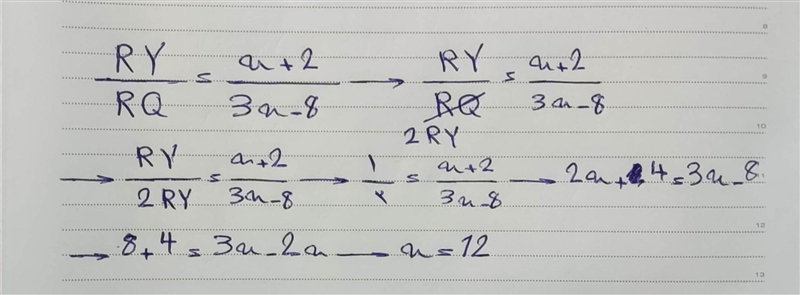 RY/RQ = x+2/3x-8 → RY/RQ = x+2/3x-8
2RY
→ RY/2RY = x+2/3x-8 → ۱/۲ = x+2/3x-8 → 2x+4=3x-8
→ 8+4=3x-2x — x=12
8
9
10
12
13